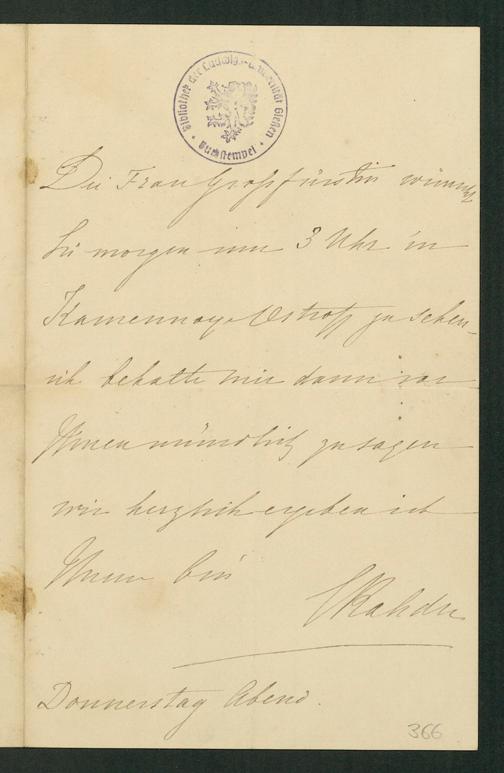 Bibliothek der Ludwigs-Universität Gießen
Buchstempel
Die Frau Großfürstin wünscht
Sie morgen um 3 Uhr in
Kamennoy-Ostroff zu sehen –
ich behalte mir dann vor
Ihnen mündlich zu sagen
wie herzlich ergeben ich
Ihnen bin
ERahden
Donnerstag Abend.
366